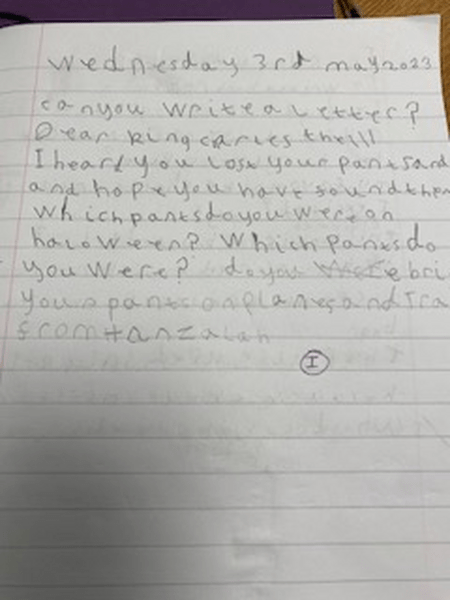 Wednesday 3rd may2023
canyou writea Letter?
Dear King carles thr111
I heard you lost your pantsand
and hope you have soundthem
Whichpantsdoyou wereon
haloween? Which Pantsdo
you were? do you bri
your pants onplanesandTra
from tanzalah
I